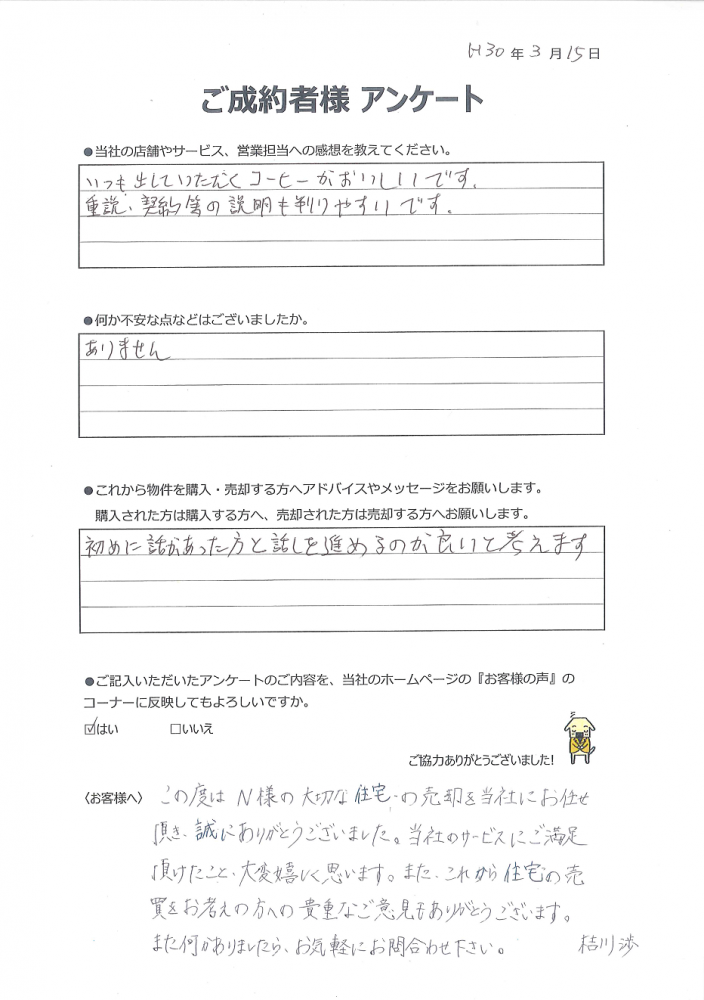 H30年3月15日
ご成約者様 アンケート
●当社の店舗やサービス、営業担当への感想を教えてください。
いつも出していただくコーヒーがおいしいです。
重説、契約等の説明も判りやすいです。
●何か不安な点などはございましたか。
ありません
●これから物件を購入・売却する方へアドバイスやメッセージをお願いします。
購入された方は購入する方へ、売却された方は売却する方へお願いします。
初めに話があった方と話しを進めるのが良いと考えます
●ご記入いただいたアンケートのご内容を、当社のホームページの『お客様の声』の
コーナーに反映してもよろしいですか。
☑はい □いいえ
ご協力ありがとうございました!
〈お客様へ〉 この度はN様の大切な住宅の売却を当社にお任せ
頂き、誠にありがとうございました。当社のサービスにご満足
頂けたこと、大変嬉しく思います。また、これから住宅の売
買をお考えの方への貴重なご意見もありがとうございます。
また何かありましたら、お気軽にお問合わせ下さい。 桔川 渉